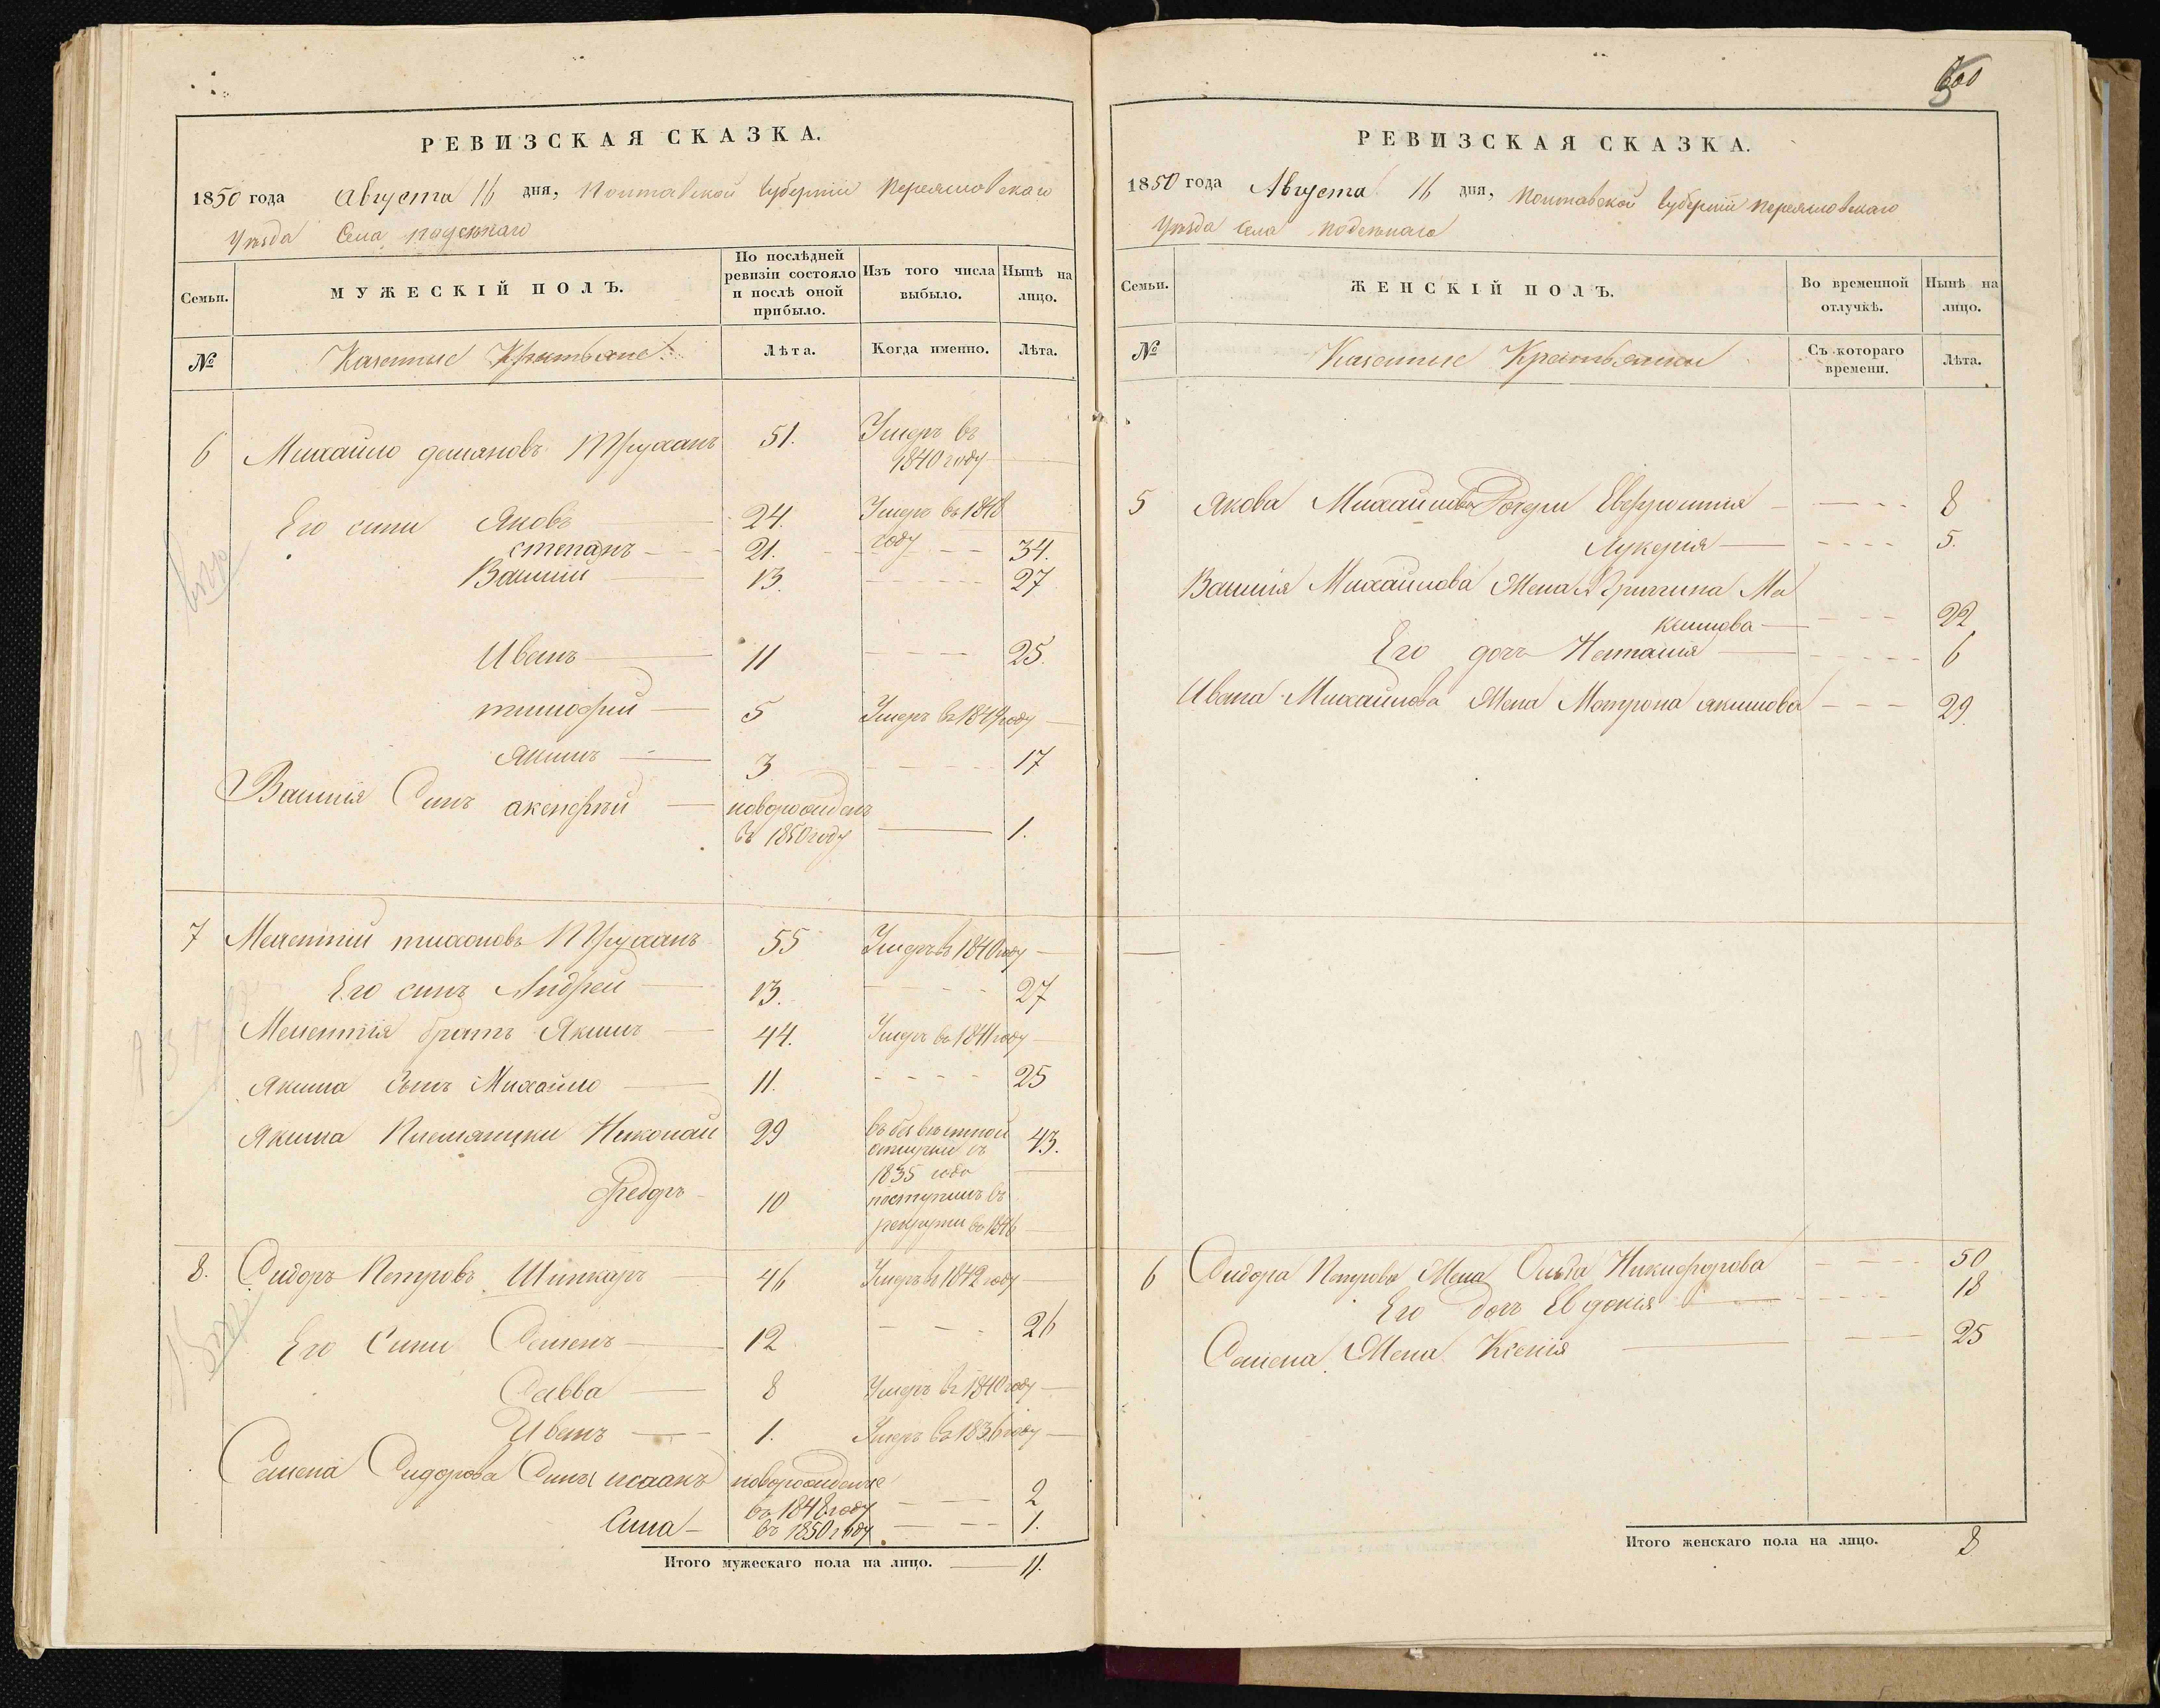 РЕВИЗСКАЯ СКАЗКА.
1850 года Августа 16 дня, Полтавской Губерніи Переясловскаго
Уѣзда Села
Семьи.
МУЖЕСКІЙ ПОЛЪ.
По послѣдней ревизіи состояло и послѣ оной прибыло.
Изъ того числа выбыло.
Нынѣ на лицо.
№
Казенные Крѣстьяне
Лѣта.
Когда именно.
Лѣта.
6 Михайло демяновъ Труханъ 51. Умеръ въ
1840 году
Его сини Яковъ 24. Умеръ въ 1848
году
степанъ 21. 34.
Василій 13. 27
Иванъ 11 25.
тимофей 5 Умеръ въ 1849 году
Якимъ 3 17
Василія Синъ новорожденъ
въ 1850 году 1.
7 Мелентій тихоновъ Труханъ 55 Умеръ въ 1840 году
Его синъ Андрей 13. 27
Мелентія братъ Якимъ 44. Умеръ въ 1841 году
Якима Сынъ Михайло 11. 25
Якима Племяники Николай 29 43.
1835 года
Федоръ 10 поступилъ въ
рекруты въ 1846
8. Сидоръ Петровъ Шинкаръ 46 Умеръ въ 1842 году
Его Сини Семенъ 12 26
Савва 8 Умеръ въ 1840 году
Иванъ 1. Умеръ въ 1836 году
Семена Сидорова Сины исаакъ новорожденые
въ 1848 году 2
Сила въ 1850 году 1.
Итого мужескаго пола на лицо. 11.
РЕВИЗСКАЯ СКАЗКА.
1850 года Августа 16 дня, Полтавской Губерніи Переясловскаго
Уѣзда Села
Семьи.
ЖЕНСКІЙ ПОЛЪ.
Во временной отлучкѣ.
Нынѣ на лицо.
№
Казенные Крѣстьянки
Съ котораго времени.
Лѣта.
5 Якова Михайлова Дочери Евфросинія 8
Лукерія 5.
Василія Михайлова Жена Ма
кимова 22
Его дочь Наталия 6
Ивана Михайлова Жена Мотрона Якимова 29.
6 Сидора Петрова Жена Ольга Никифорова 50
Его дочь Евдокія 18
Семена Жена Ксенія 25
Итого женскаго пола на лицо. 8